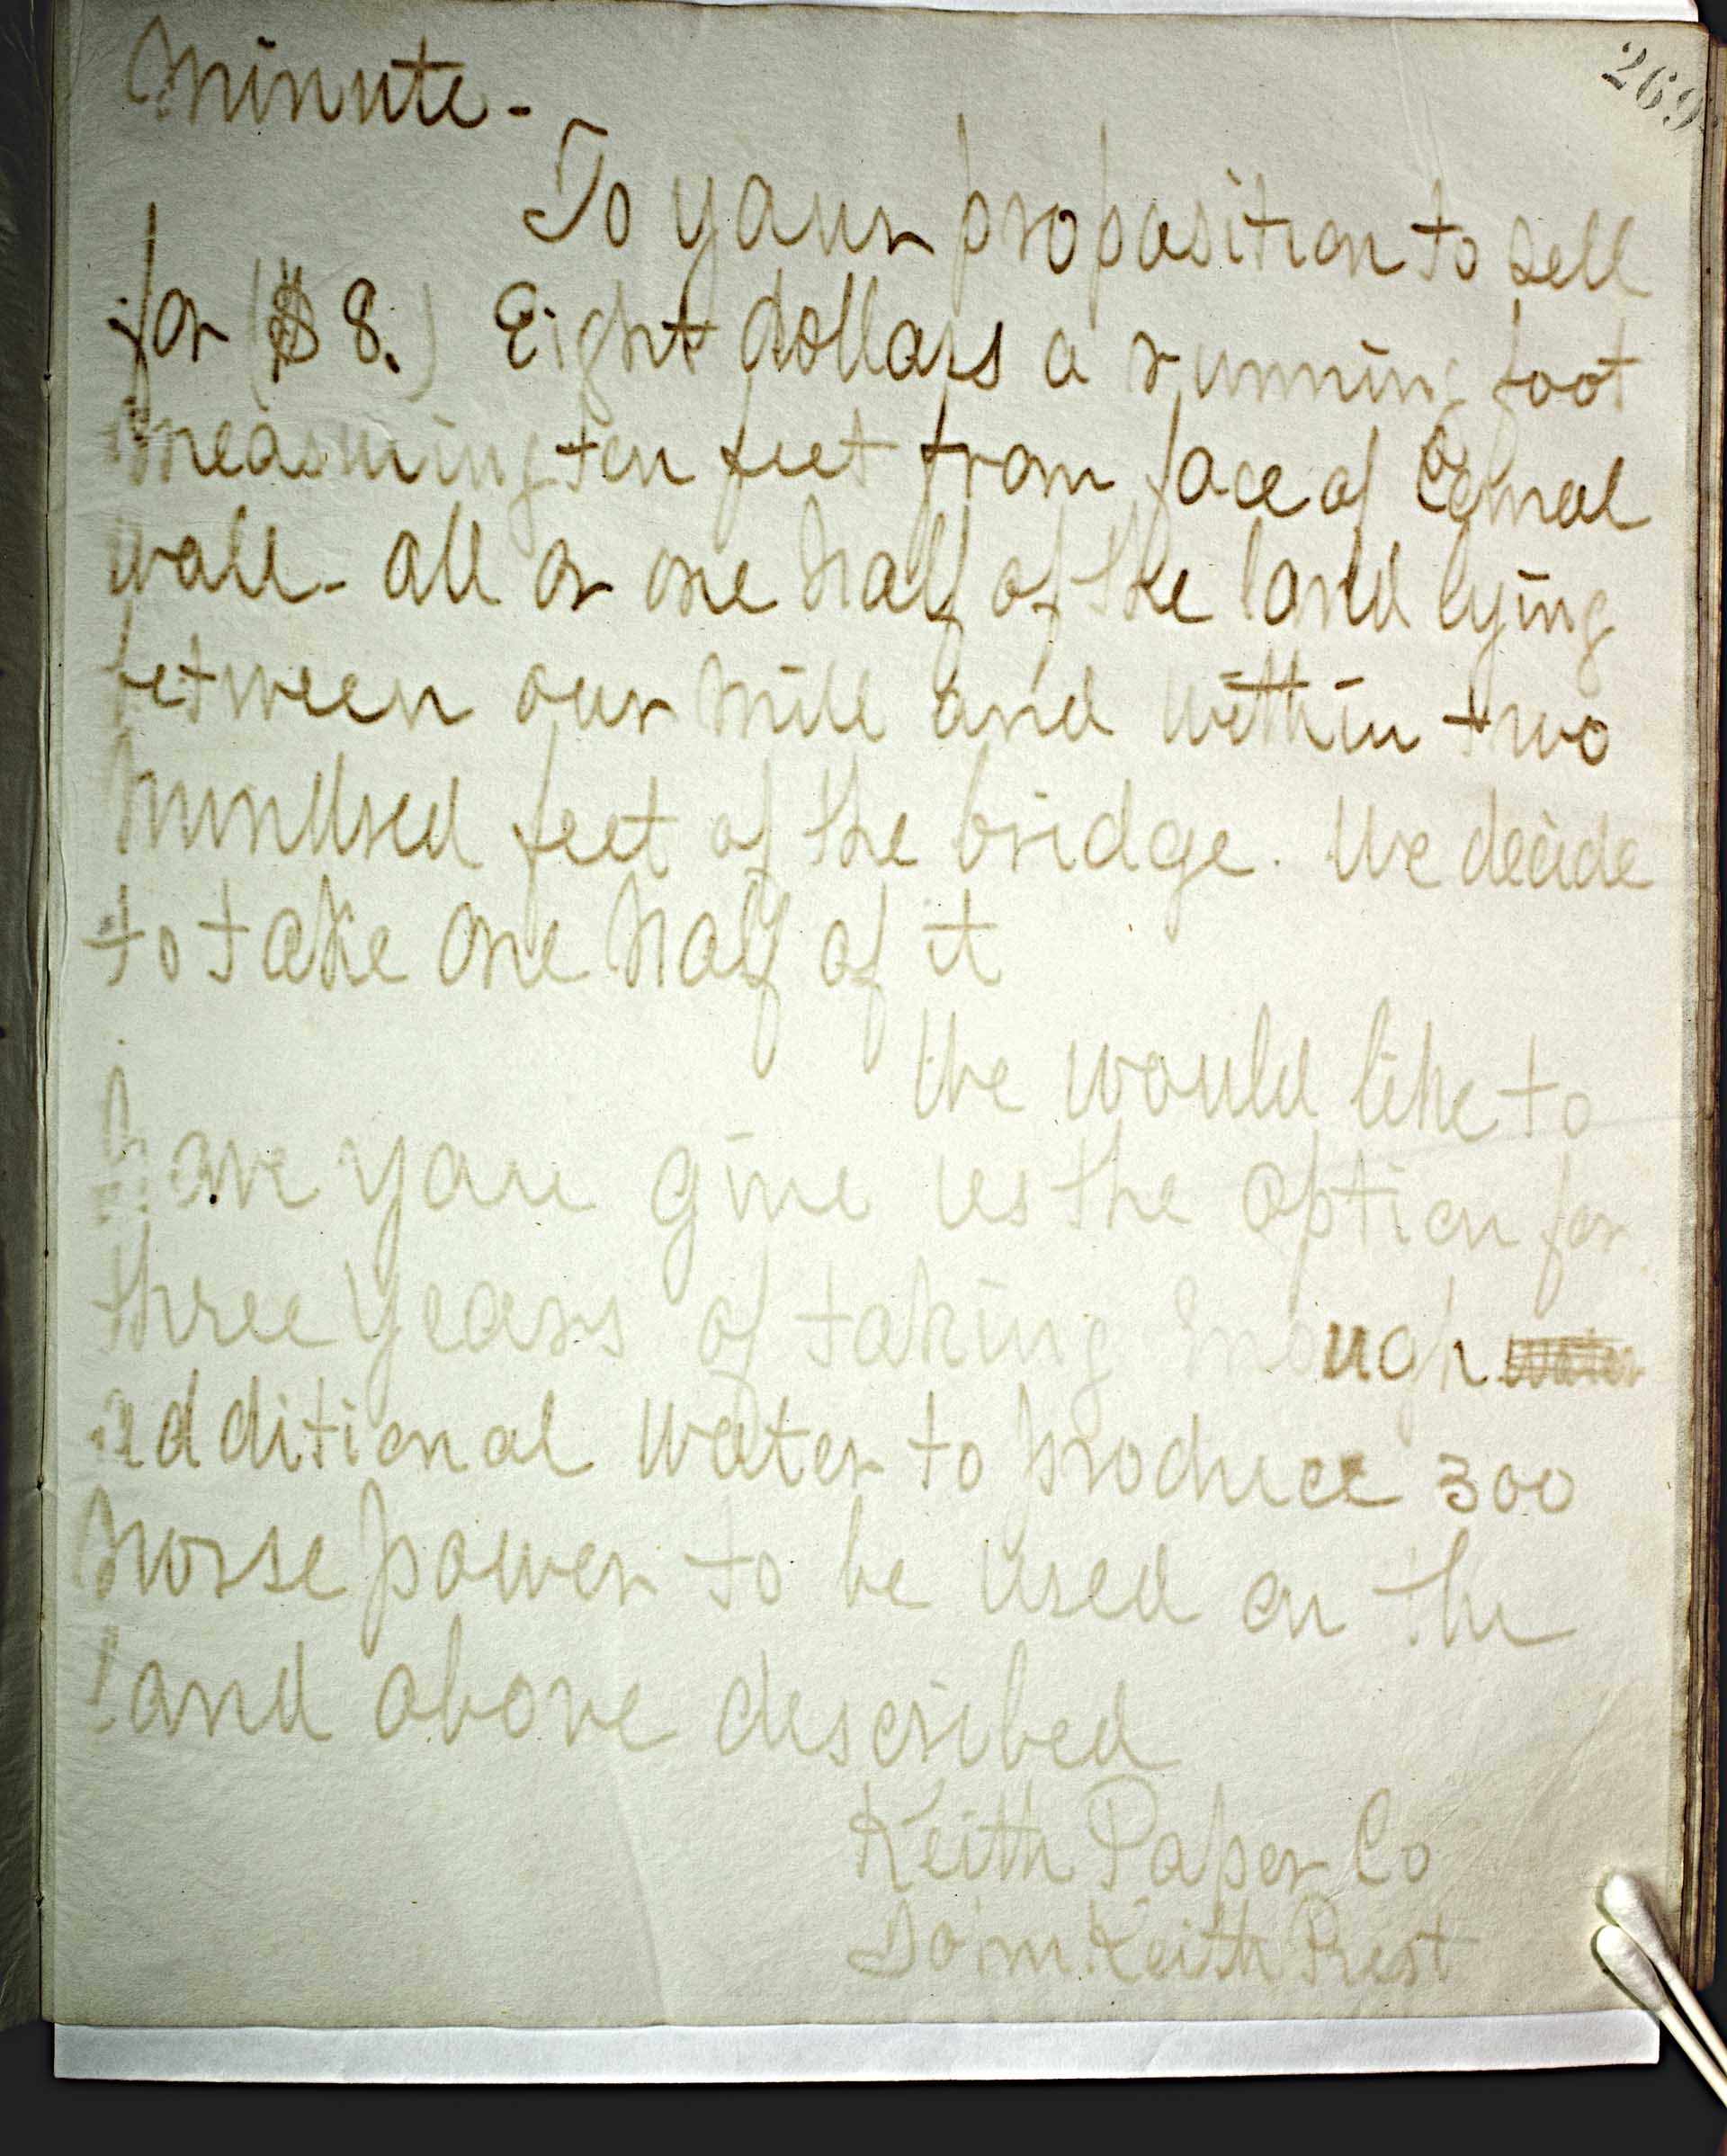 269
minute -
To your proposition to sell
for ($8.) Eight dollars a running foot
measuring ten feet from face of Canal
wall - all or one half of the land lying
between our mill and within two
hundred feet of the bridge. We decide
to take one half of it
We would like to
have you give us the option for
three years of taking enough
additional water to produce 300
horse power to be used on the
land above described
Keith Paper Co
Keith Prest